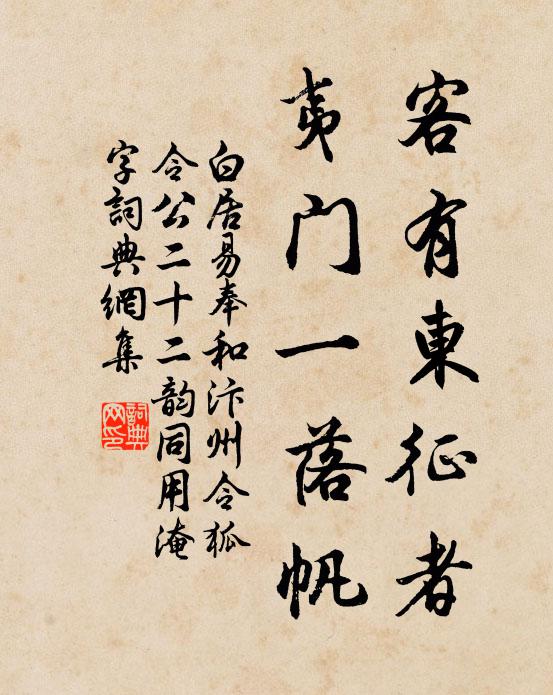 客有東征者
夷門一落帆
白居易奉和汴州令狐
令公二十二韵同用淹
字詞典網集
詞典
网印